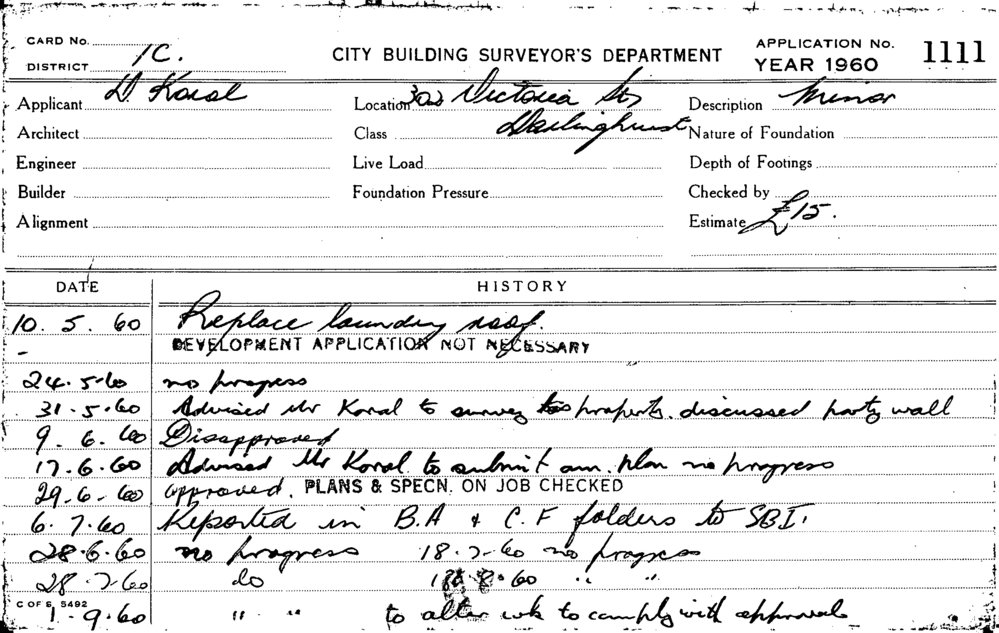 CARD No.
DISTRICT 1C.
CITY BUILDING SURVEYOR'S DEPARTMENT
APPLICATION No. 1111
YEAR 1960
Applicant D. Koral
Location 302 Victoria St
Description Minor
Architect
Class Darlinghurst
Nature of Foundation
Engineer
Live Load
Depth of Footings
Builder
Foundation Pressure
Checked by
Alignment
Estimate £15.
DATE HISTORY
10. 5. 60 Replace laundry roof.
DEVELOPMENT APPLICATION NOT NECESSARY
24.5.60 no progress
31.5.60 Advised Mr Koral to survey property. discussed party wall
9. 6. 60 Disapproved
17.6.60 Advised Mr Koral to submit am. plan no progress
29-6-60 approved. PLANS & SPECN. ON JOB CHECKED
6.7.60 Reported in B.A & C.F folders to SBI.
28.6.60 no progress 18.7.60 no progress
28.7.60 do 8.60 " "
C OF S, 5492
1.9.60 " " to alter wk to comply with approval